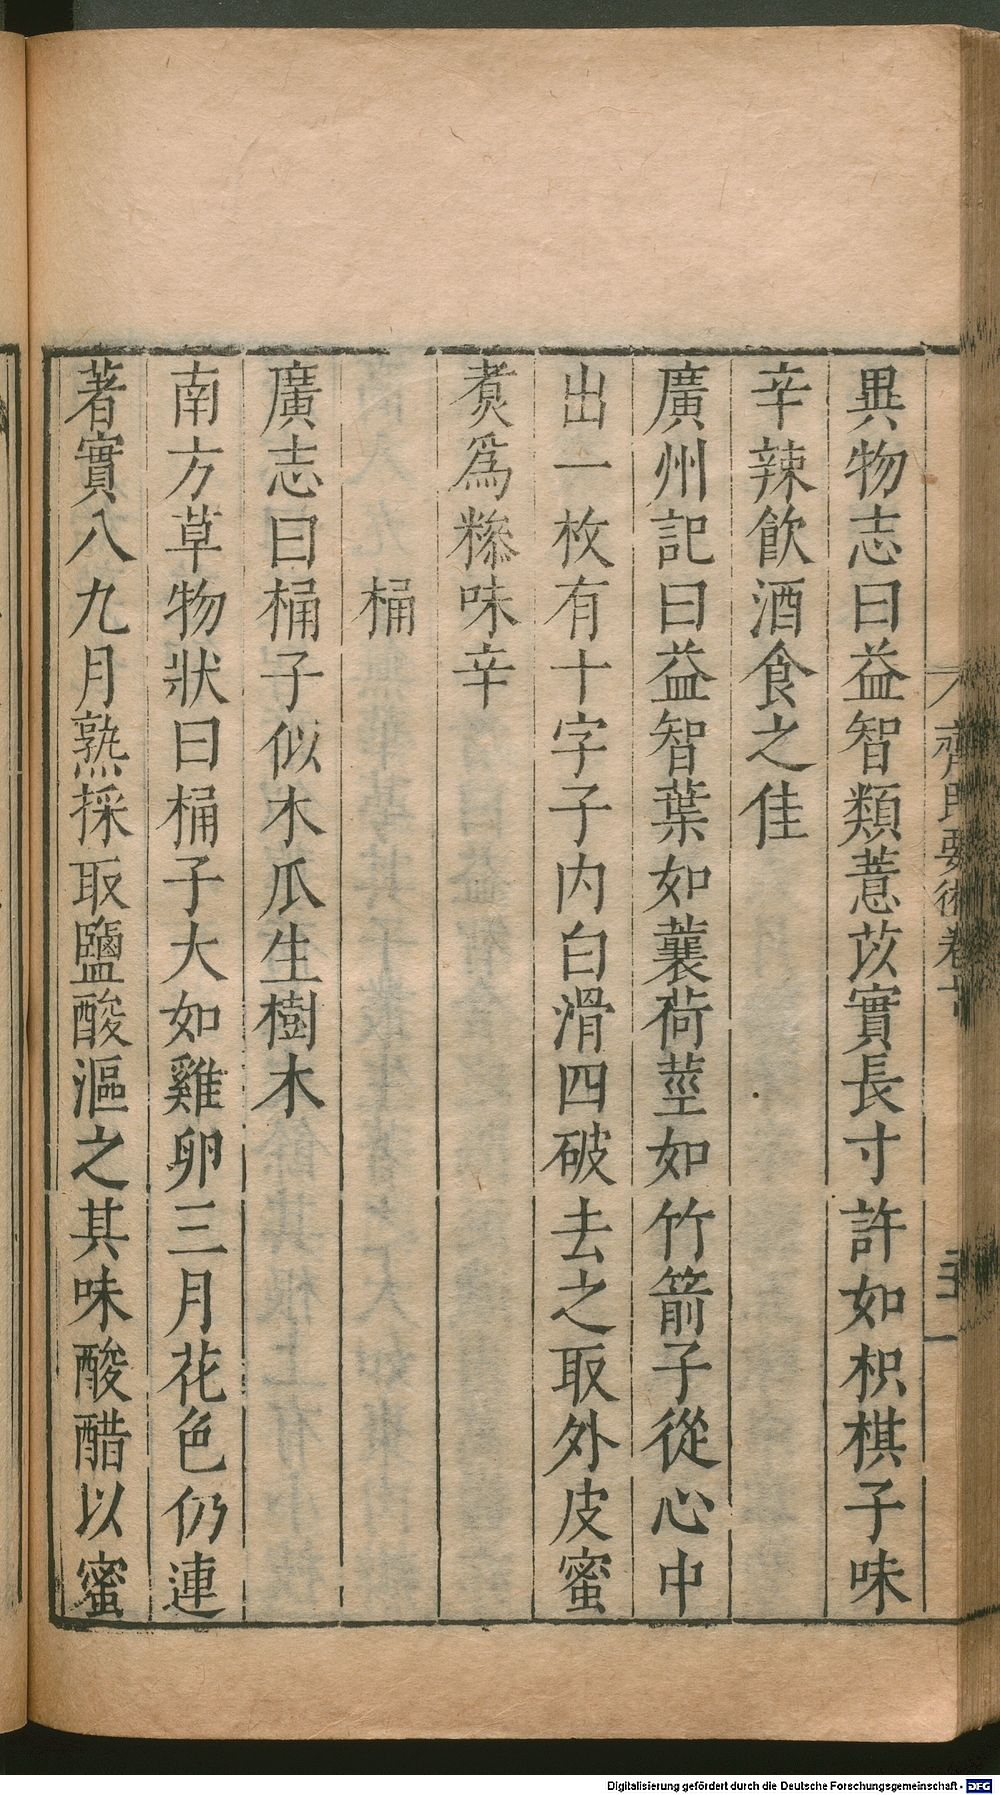 齊民要術卷十
異物志曰益智類薏苡實長寸許如枳棋子味
辛辣飲酒食之佳
廣州記曰益智葉如蘘荷莖如竹箭子從心中
出一枚有十字子内白滑四破去之取外皮蜜
煑爲糝味辛
桶
廣志曰桶子似木瓜生樹木
南方草物狀曰桶子大如雞卵三月花色仍連
著實八九月熟採取鹽酸漚之其味酸醋以蜜
Digitalisierung gefördert durch die Deutsche Forschungsgemeinschaft - DFG